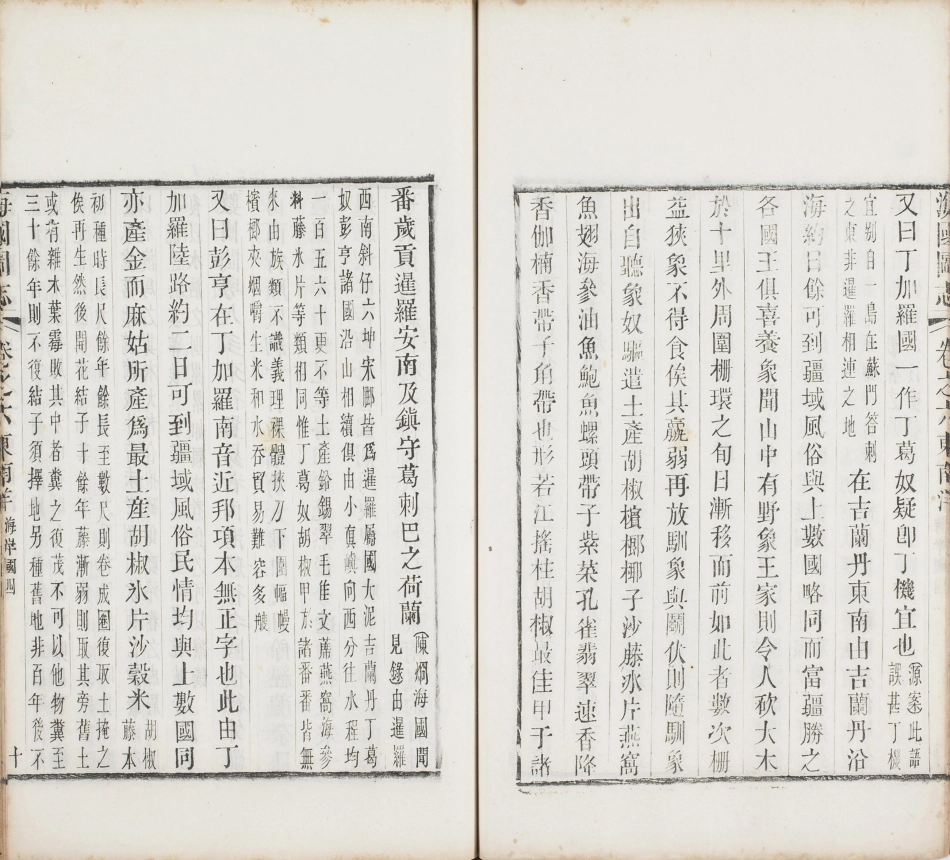 海國圖志
卷之六東南洋
又曰丁加羅國一作丁葛奴疑卽丁機宜也
源案此語
誤甚丁機
宜別自一島在蘇門答剌
之東非暹羅相連之地
在吉蘭丹東南由吉蘭丹沿
海約日餘可到疆域風俗與上數國略同而富疆勝之
各國王俱喜養象聞山中有野象王家則令人砍大木
於十里外周圍柵環之旬日漸移而前如此者數次柵
益狹象不得食俟其羸弱再放馴象與鬬伏則隨馴象
出自聽象奴驅遣土產胡椒檳榔椰子沙藤冰片燕窩
魚翅海參油魚鮑魚螺頭帶子紫菜孔雀翡翠速香降
香伽楠香帶子角帶也形若江搖柱胡椒最佳甲于諸
番歲貢暹羅安南及鎮守葛剌巴之荷蘭
陳烱海國聞
見錄由暹羅
西南斜仔六坤宋腳皆爲暹羅屬國大泥吉蘭丹丁葛
奴彭亨諸國沿山相續俱由小眞嶼向西分往水程均
一百五六十更不等土產鉛錫翠毛佳文蓆燕窩海參
科藤氷片等類相同惟丁葛奴胡椒甲於諸番番皆無
來由族類不識義理裸體挾刀下圍幅幔
檳榔夾烟嚼生米和水吞貿易難容多艘
又曰彭亨在丁加羅南音近邦項本無正字也此由丁
加羅陸路約二日可到疆域風俗民情均與上數國同
亦產金而麻姑所產爲最土產胡椒氷片沙穀米
胡椒
藤本
初種時長尺餘年餘長至數尺則卷成圈復取土掩之
俟再生然後開花結子十餘年藤漸弱則取其旁舊土
或有雜木葉霉敗其中者糞之復茂不可以他物糞至
三十餘年則不復結子須擇地另種舊地非百年後不
海國圖志
卷之六東南洋
海岸國四
十